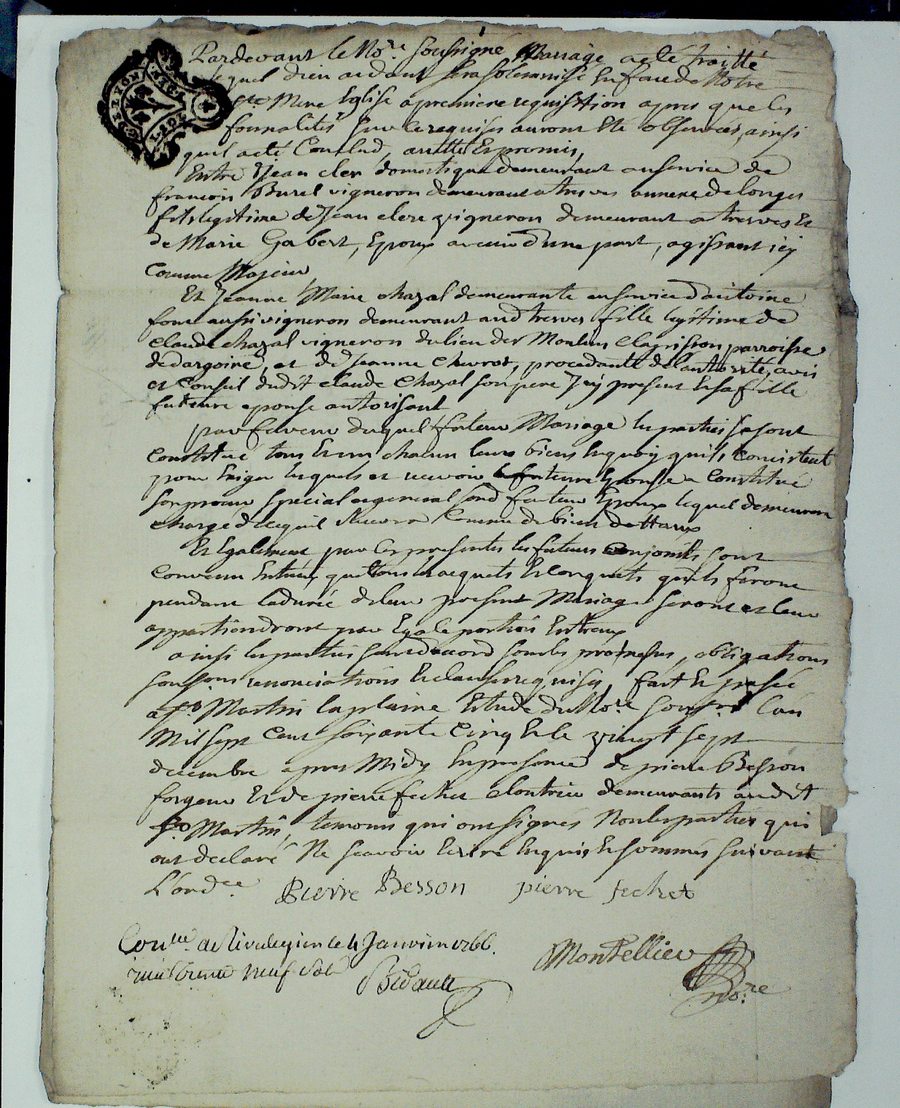 Pardevant le No.re soussigné Mariage a été traitté
lequel dieu aidant sera solemnisé En face de Notre
Ste Mere Eglise a premiere requisition apres que les
formalités sur ce requises auront Eté observées, ainsi
qu'il a été Conclud, arretté Et promis,
Entre Jean clerc domestique demeurant au service de
francois Burel vigneron demeurant a treves annexe de longes
fils legitime de Jean clerc vigneron demeurant a treves Et
de Marie Gabert, Epoux avenir d'une part, agissant icy
comme Majeur
Et Jeanne Marie chazal demeurante au service d'antoine
four aussi vigneron demeurant audt treves fille legitime de
claude chazal vigneron du lieu des Moulins parroisse
de dargoire, et de Jeanne chevrot, procedante de l'autorité, avis
et Conseil dudit claude Chazal son pere Icy present Et sa fille
future epouse autorisant
par faveur duquel futeur Mariage les parties se sont
Constitué tous Et un chacun leurs biens En quoy qu'ils Consistent
pour Exiger lesquels et recevoir la future Epouse a Constitué
son procur special et general sond futeur Epoux lequel demeurera
chargé de ce qu'il Recevra Comme de bien dottaux
Et Egalement par ces presentes les futeurs conjoints sont
convenu Entreux que tous les acquets Et Conquets qu'ils feront
pendant la durée de leur present Mariage seront et leur
appartiendront par Egale portions Entreux
ainsi les parties sont d'acord sous les promesses, obligations
soumissions renonciations Et clauses requises, fait Et passé
a St Martin la plaine Etude du No.re soussigné L'an
Mil sept Cent soixante Cinq Et le vingt sept
decembre apres Midy En presence de pierre Besson
forgeur Et de pierre fechet cloutier demeurants audit
St Martin, temoins qui ont signés Non les parties qui
ont declaré Ne scavoir Ecrire Enquis Et sommés suivant
L'ord.ce Pierre Besson pierre fechet
Con.lle a Rivedegier le 4 Janvier 1766. Montellier
trente neuf sols Bedault no.re